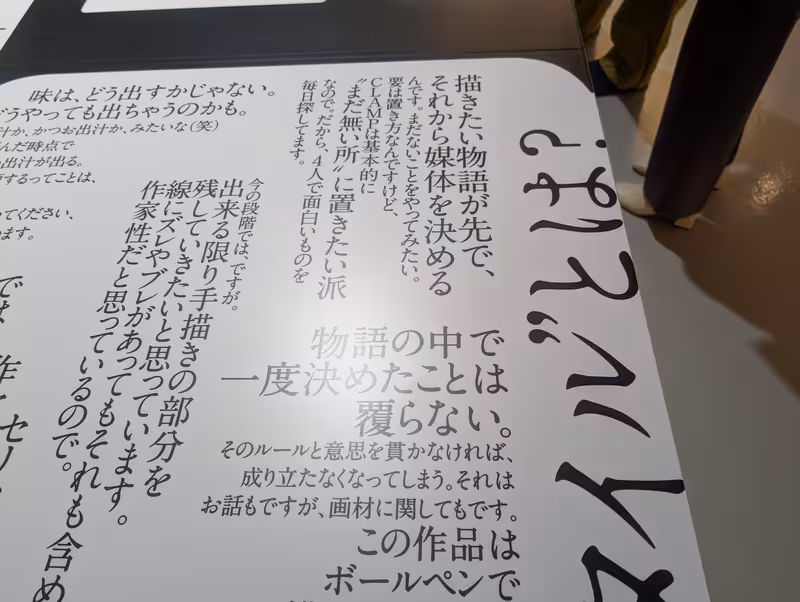 描きたい物語が先で、
それから媒体を決める
んです。まだないことをやってみたい。
要は置き方なんですけど、
CLAMPは基本的に
“まだ無い所”に置きたい派
なので。だから、4人で面白いものを
毎日探してます。
味は、どう出すかじゃない。
どうやっても出ちゃうのかも。
かつお出汁か、みたいな(笑)
んだ時点で
出汁が出る。
するってことは、
てください、
ます。
今の段階では、ですが。
出来る限り手描きの部分を
残していきたいと思っています。
線にズレやブレがあってもそれも含め
作家性だと思っているので。
物語の中で
一度決めたことは
覆らない。
そのルールと意思を貫かなければ、
成り立たなくなってしまう。それは
お話もですが、画材に関してもです。
この作品は
ボールペンで